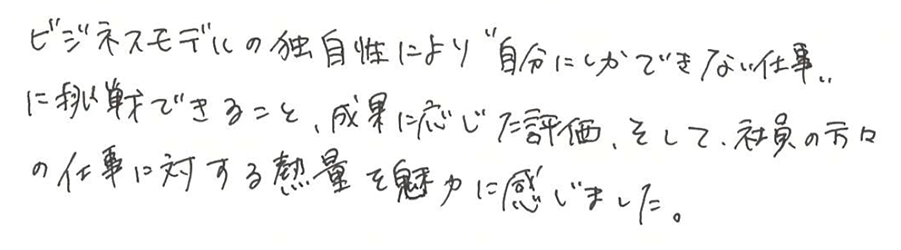 ビジネスモデルの独自性により"自分にしかできない仕事"
に挑戦できること、成果に応じた評価、そして、社員の方々
の仕事に対する熱量を魅力に感じました。